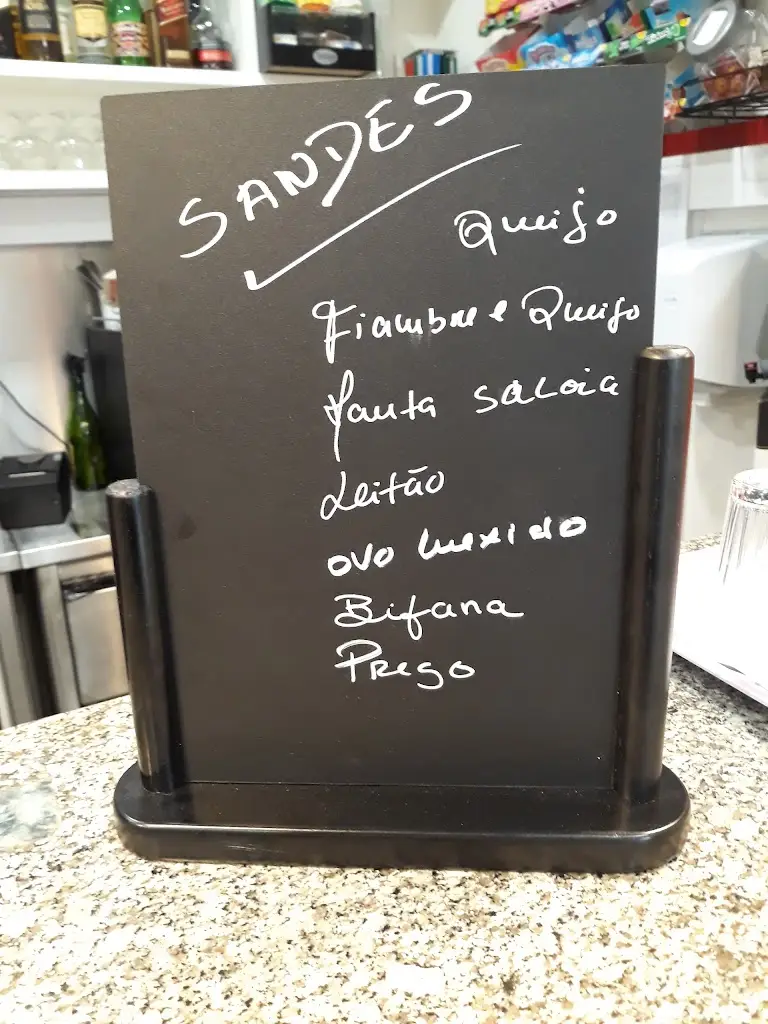 SANDES
Queijo
Fiambre e Queijo
Panta saloia
Leitão
ovo mexido
Bifana
Prego